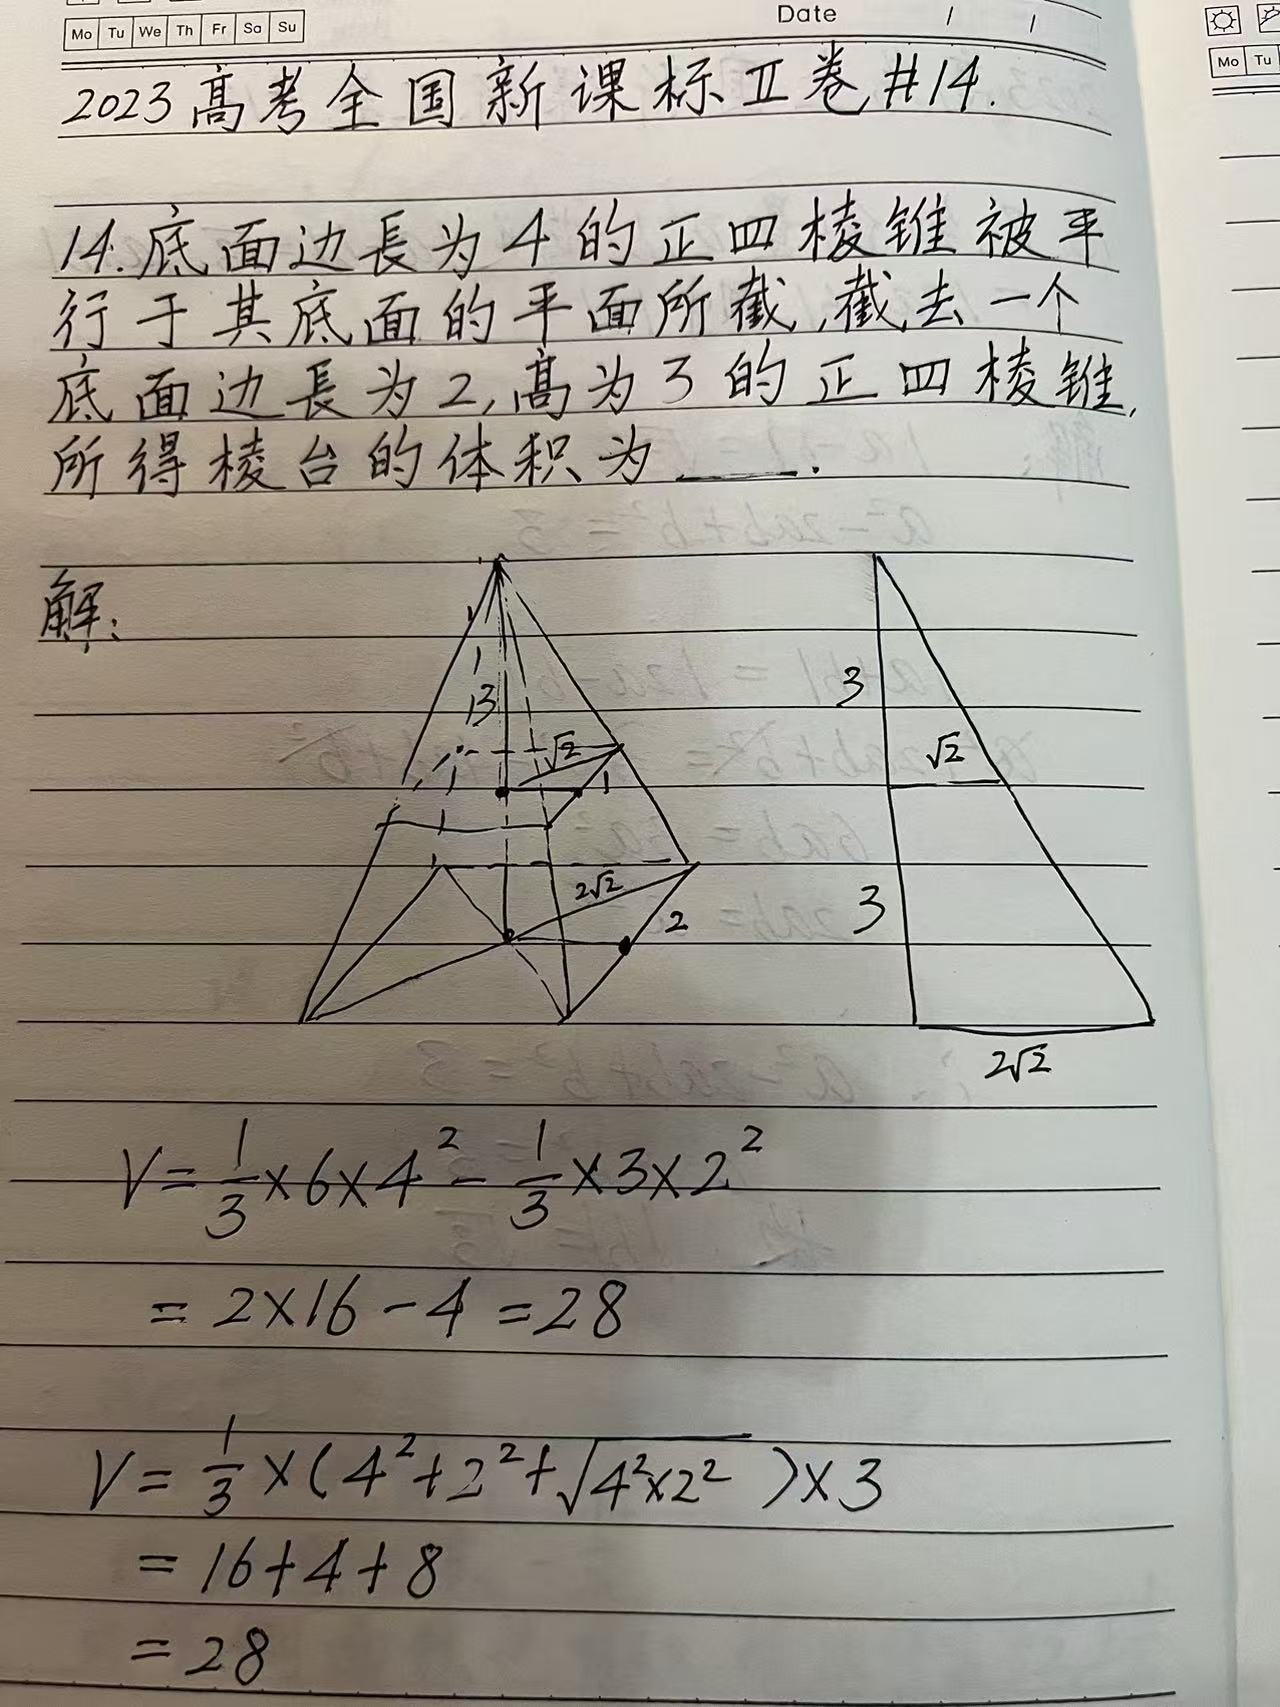 Mo Tu We Th Fr Sa Su
Date / /
Mo Tu
2023高考全国新课标II卷#14.
14.底面边長为4的正四棱锥被平
行于其底面的平面所截,截去一个
底面边長为2,高为3的正四棱锥,
所得棱台的体积为____.
解:
3
√2
1
2√2
2
3
√2
3
2√2
V=1/3×6×4²-1/3×3×2²
=2×16-4=28
V=1/3×(4²+2²+√(4²×2²))×3
=16+4+8
=28